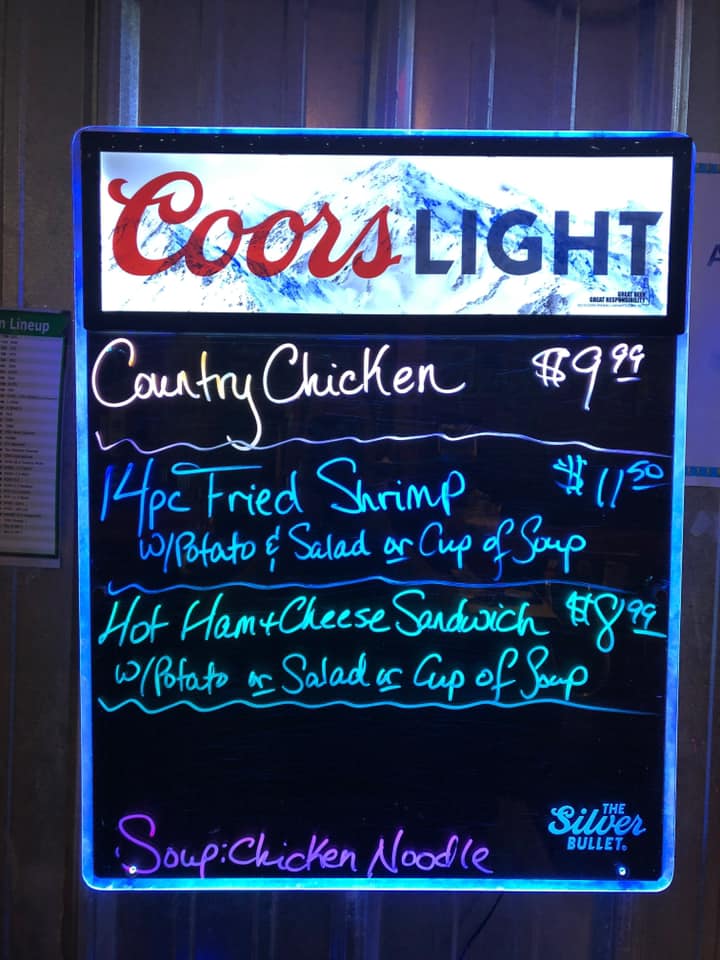 Coors LIGHT
GREAT BEER
GREAT RESPONSIBILITY
n Lineup
Country Chicken $9.99
14pc Fried Shrimp $11.50
w/Potato & Salad or Cup of Soup
Hot Ham + Cheese Sandwich $8.99
w/Potato or Salad or Cup of Soup
THE
Silver
BULLET®
Soup: Chicken Noodle